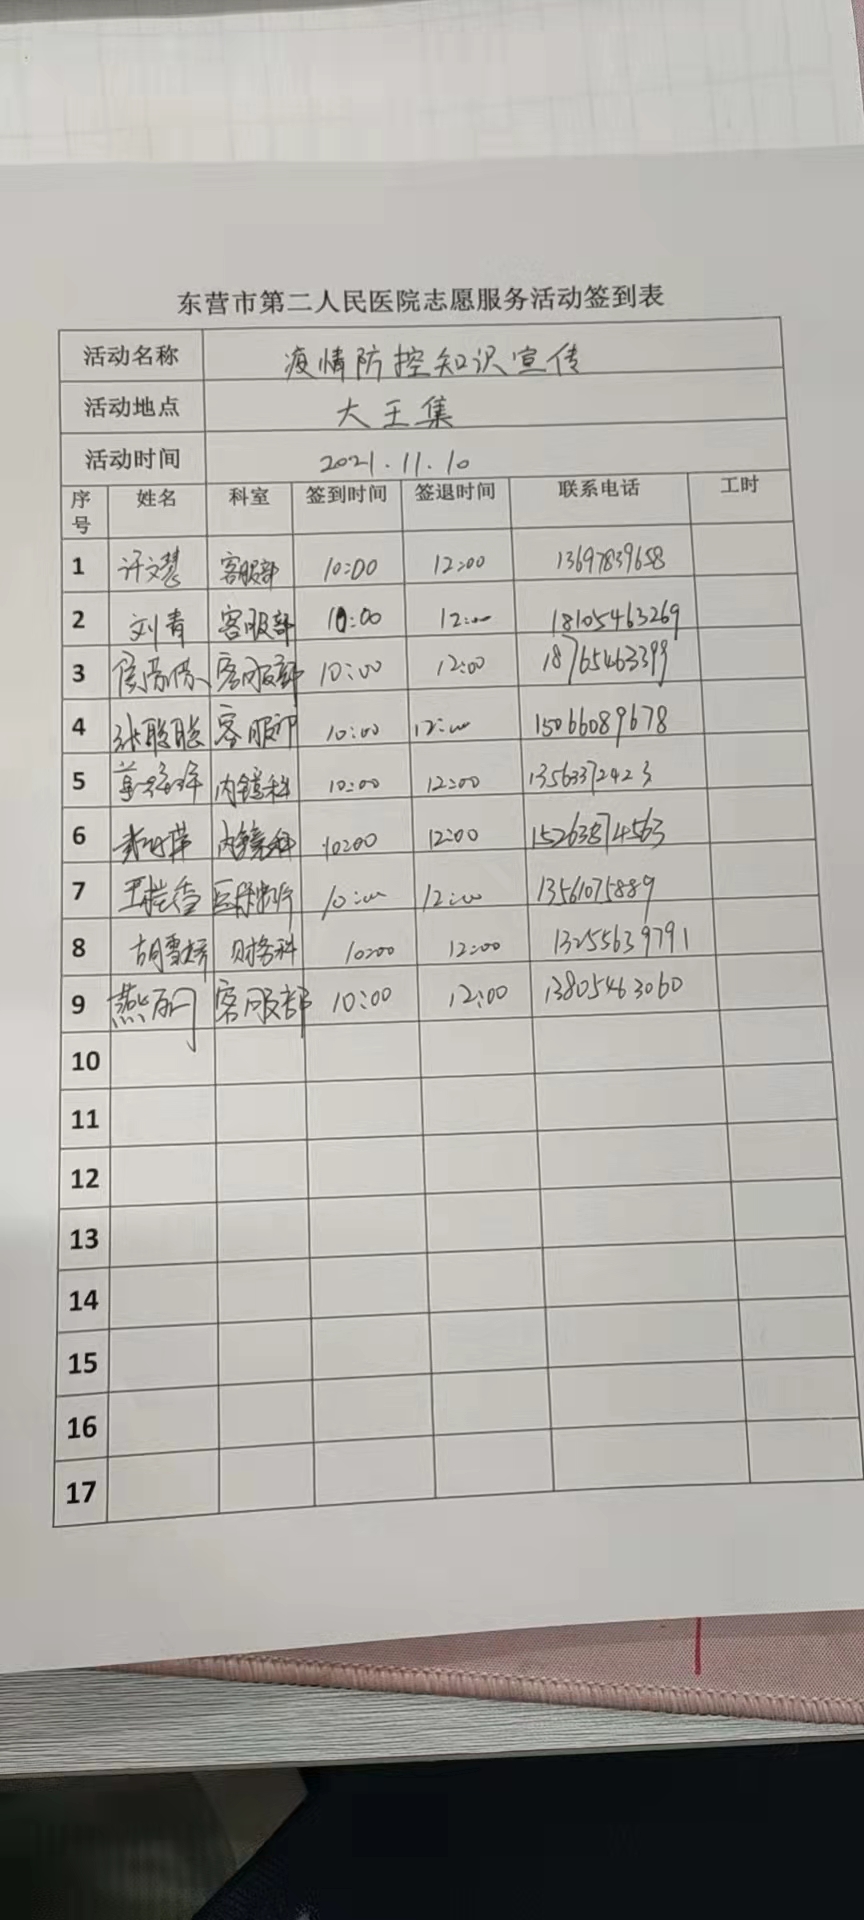 东营市第二人民医院志愿服务活动签到表
活动名称 疫情防控知识宣传
活动地点 大王集
活动时间 2021.11.10
序号 姓名 科室 签到时间 签退时间 联系电话 工时
1 许文慧 客服部 10:00 12:00 13697839658
2 刘青 客服部 10:00 12:00 18105463269
3 客服部 10:00 12:00 18765463399
4 张聪聪 客服部 10:00 12:00 15066089678
5 内镜科 10:00 12:00 13563372423
6 内镜科 10:00 12:00 15263874563
7 10:00 12:00 13561075889
8 胡雪婷 财务科 10:00 12:00 13255639791
9 燕丽 客服部 10:00 12:00 13805463060
10
11
12
13
14
15
16
17